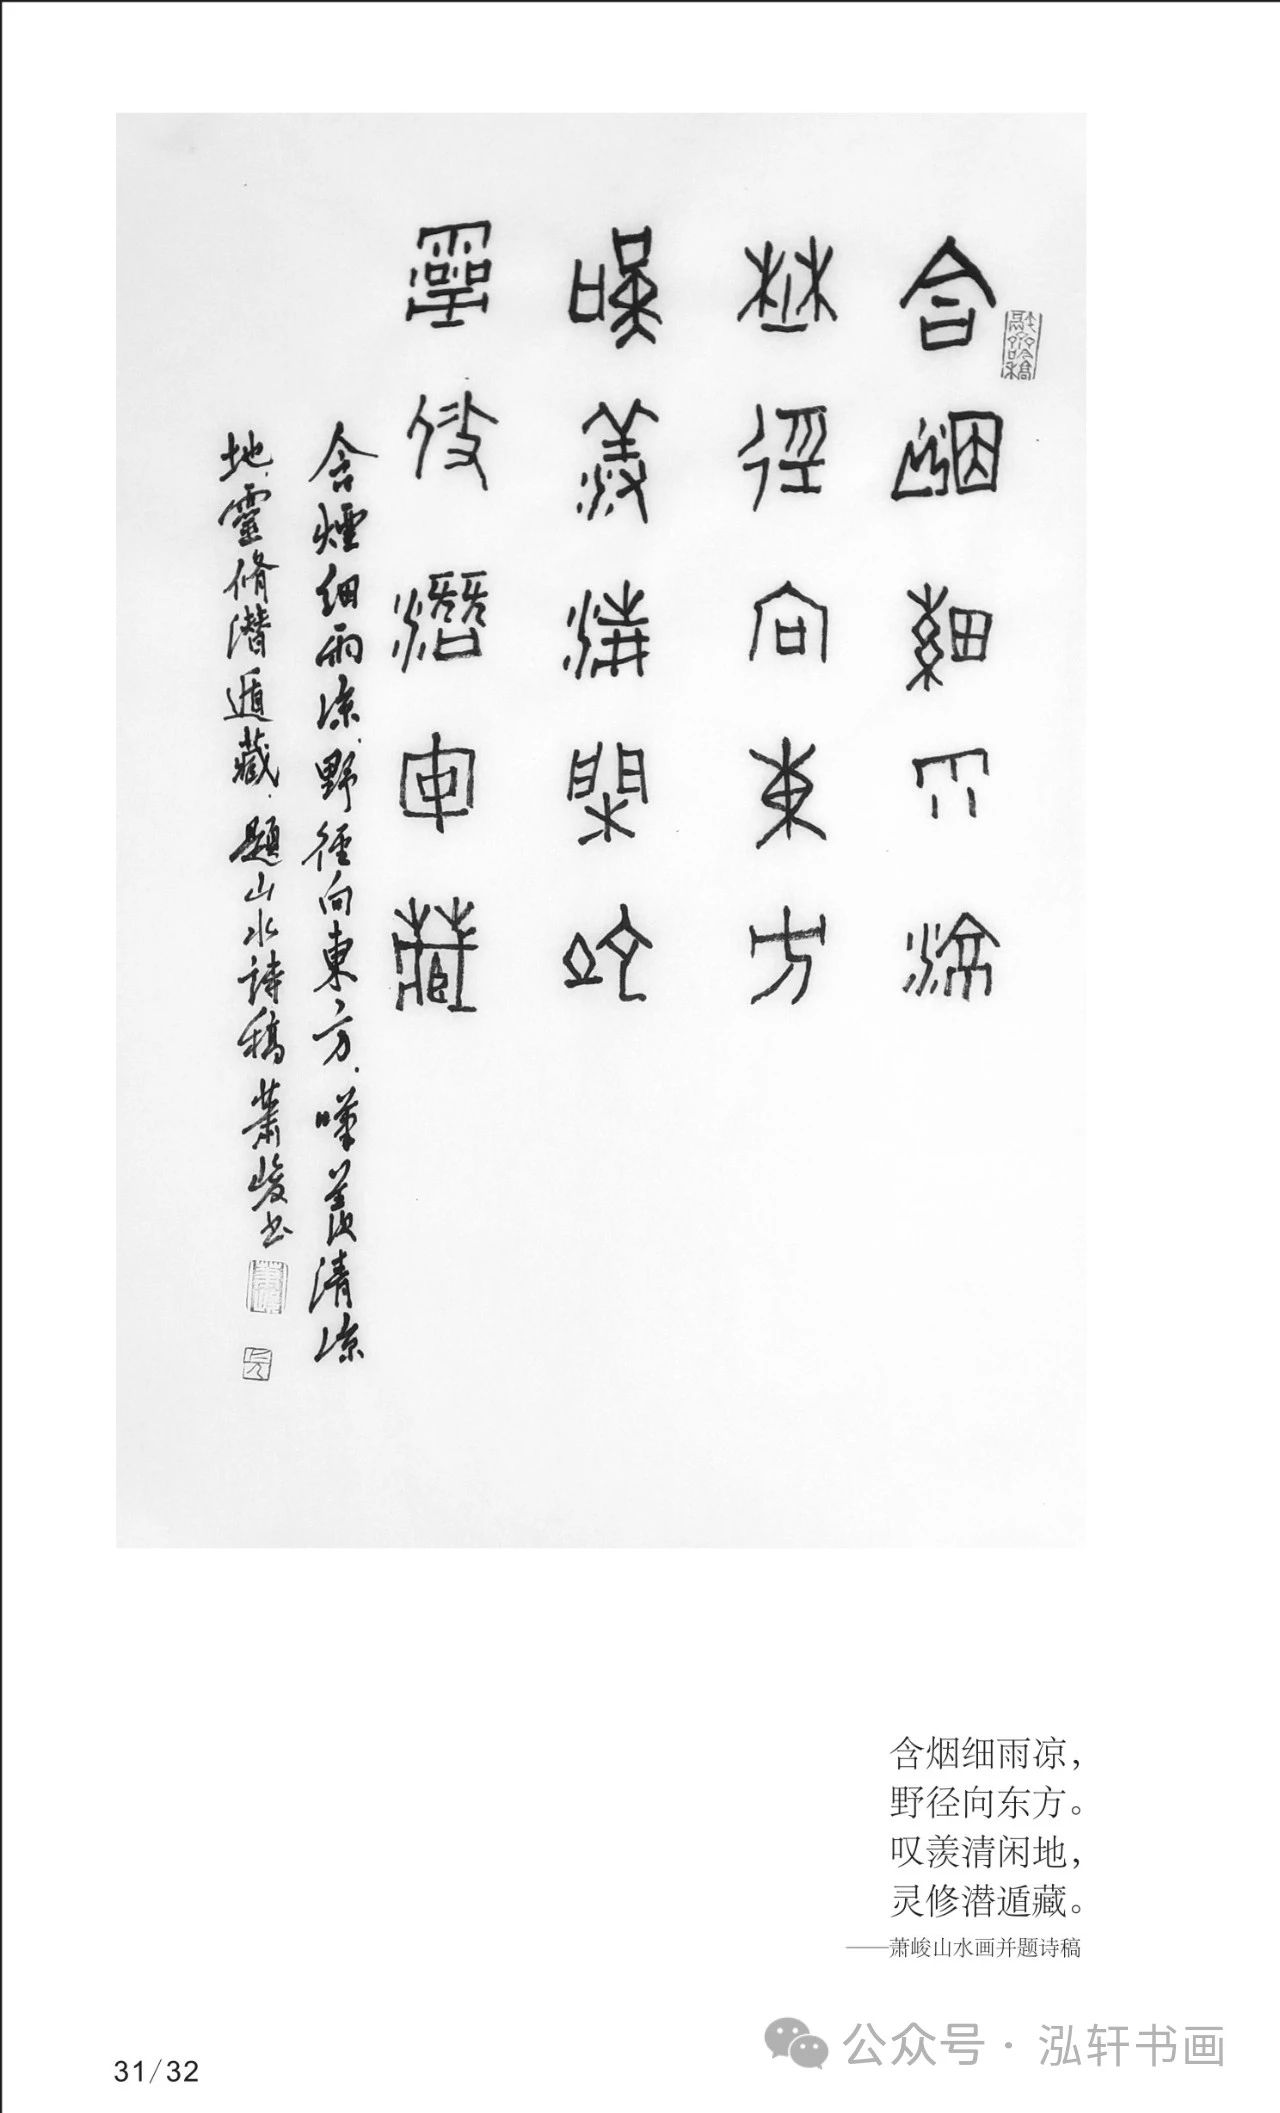 含煙細雨涼
埜徑向東方
嘆羨清閑地
靈修潛遁藏
含煙細雨凉野徑向東方嘆羨清凉
地靈修潛遁藏題山水詩稿蕭峻书
含烟细雨凉，
野径向东方。
叹羡清闲地，
灵修潜遁藏。
——萧峻山水画并题诗稿
31/32
公众号·泓轩书画